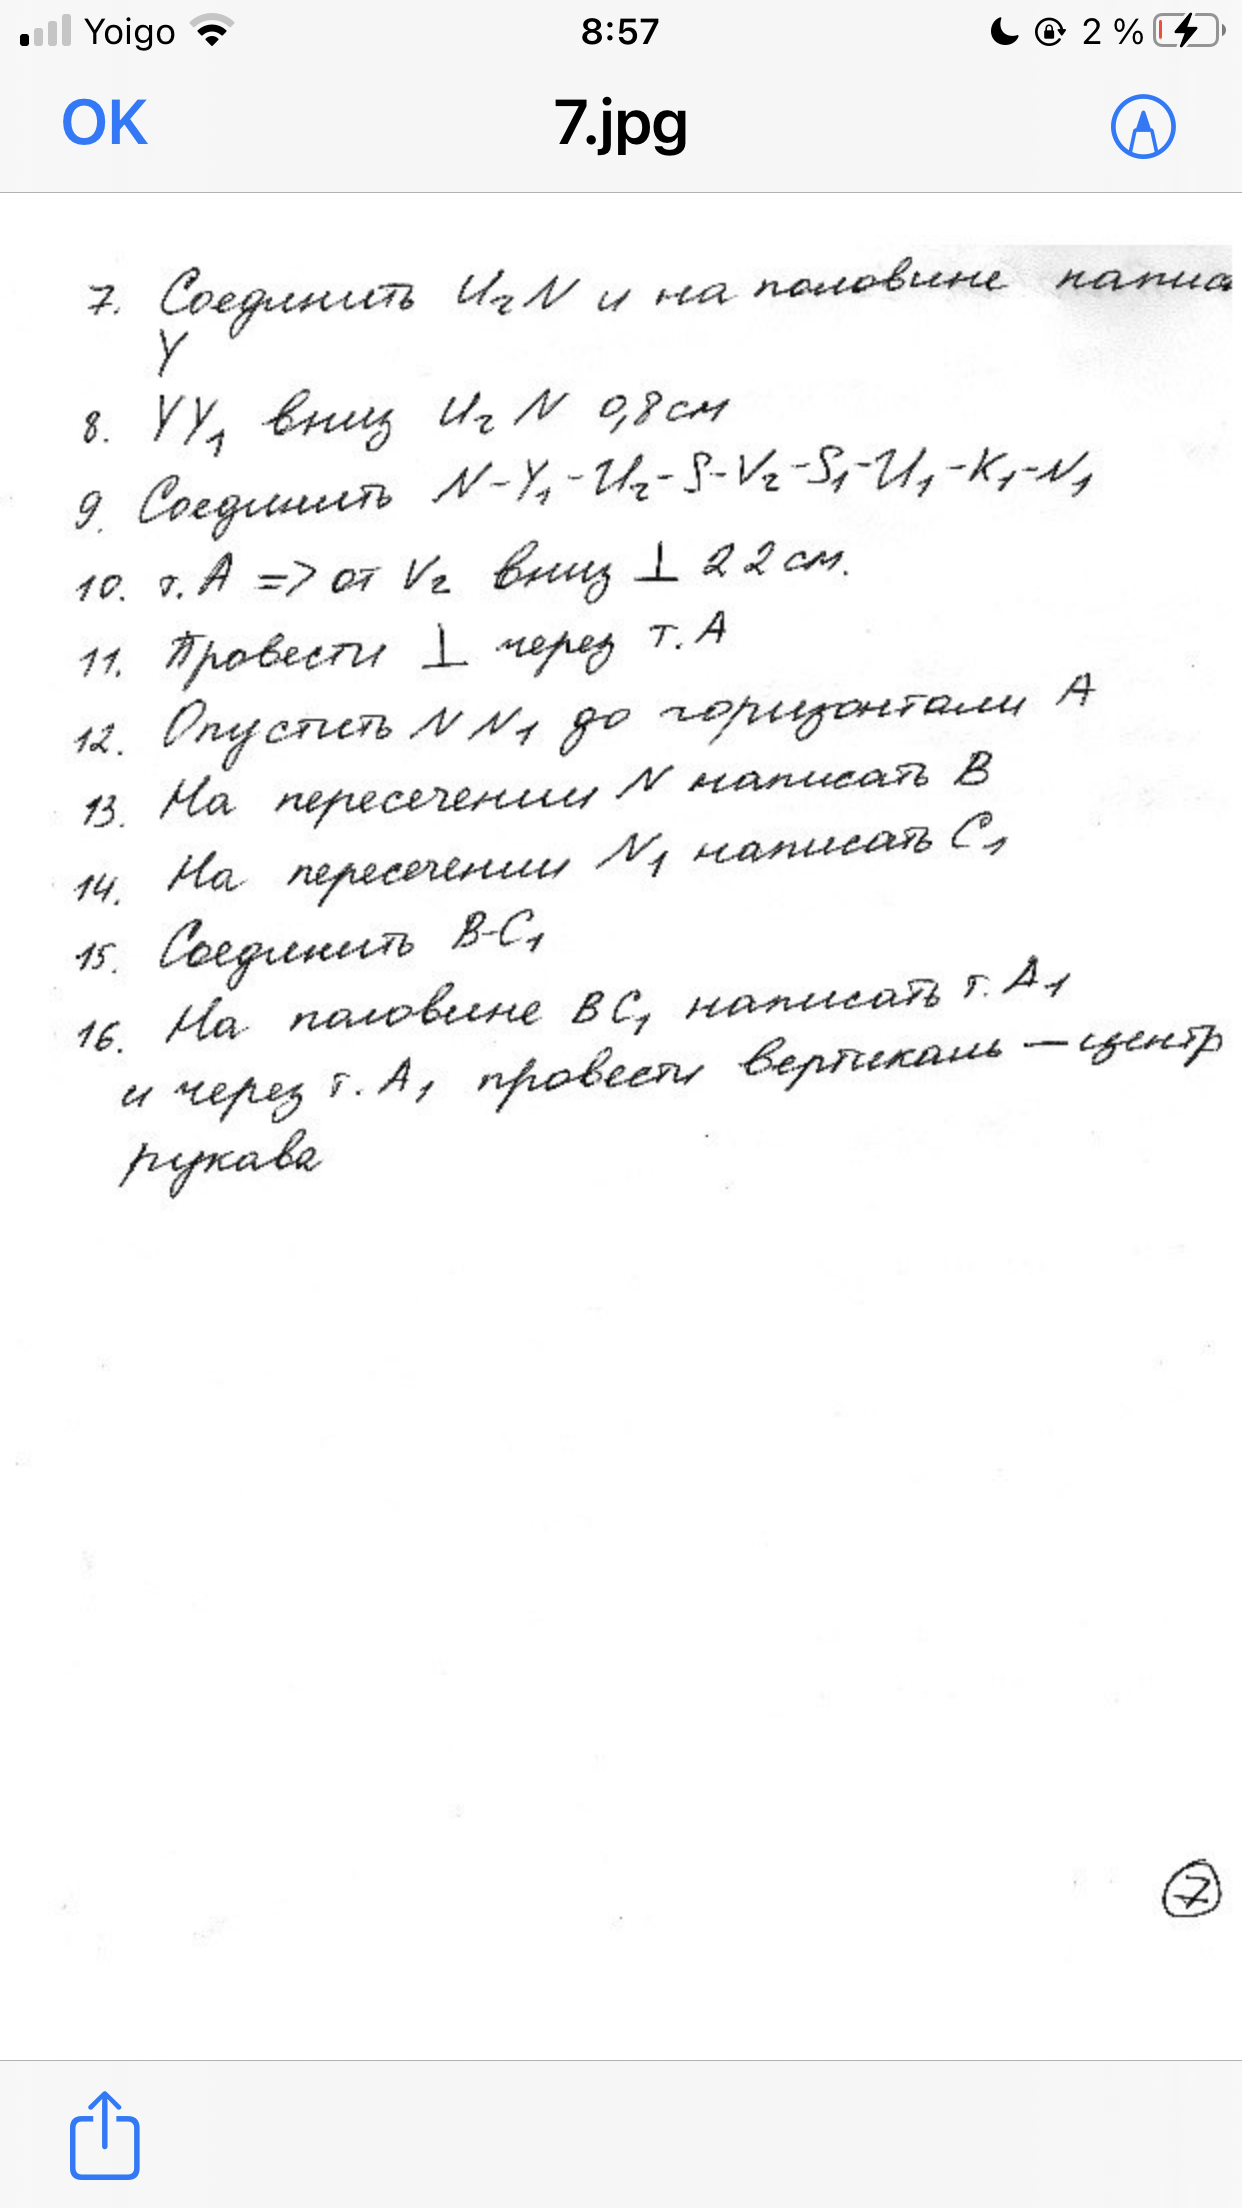 Yoigo 8:57 2 %
OK 7.jpg
7. Соединить U₂N и на половине
Y
8. YY₁ вниз U₂N 0,8см
9. Соединить N-Y₁-U₂-S-V₂-S₁-U₁-K₁-N₁
10. т. А => от V₂ вниз ⊥ 22см.
11. Провести ⊥ через т. А
12. Опустить N N₁ до горизонтали А
13. На пересечении N написать В
14. На пересечении N₁ написать С₁
15. Соединить В-С₁
16. На половине ВС₁ написать т. А₁
и через т. А₁ провести вертикаль — центр
рукава
7